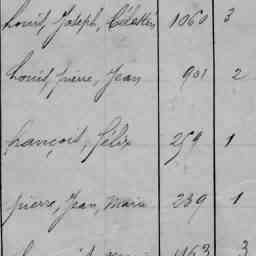 Louis, Joseph, Célestin 1060 3
Louis, Pierre, Jean 901 2
François, Félix 259 1
Pierre, Jean, Marie 239 1
463 3